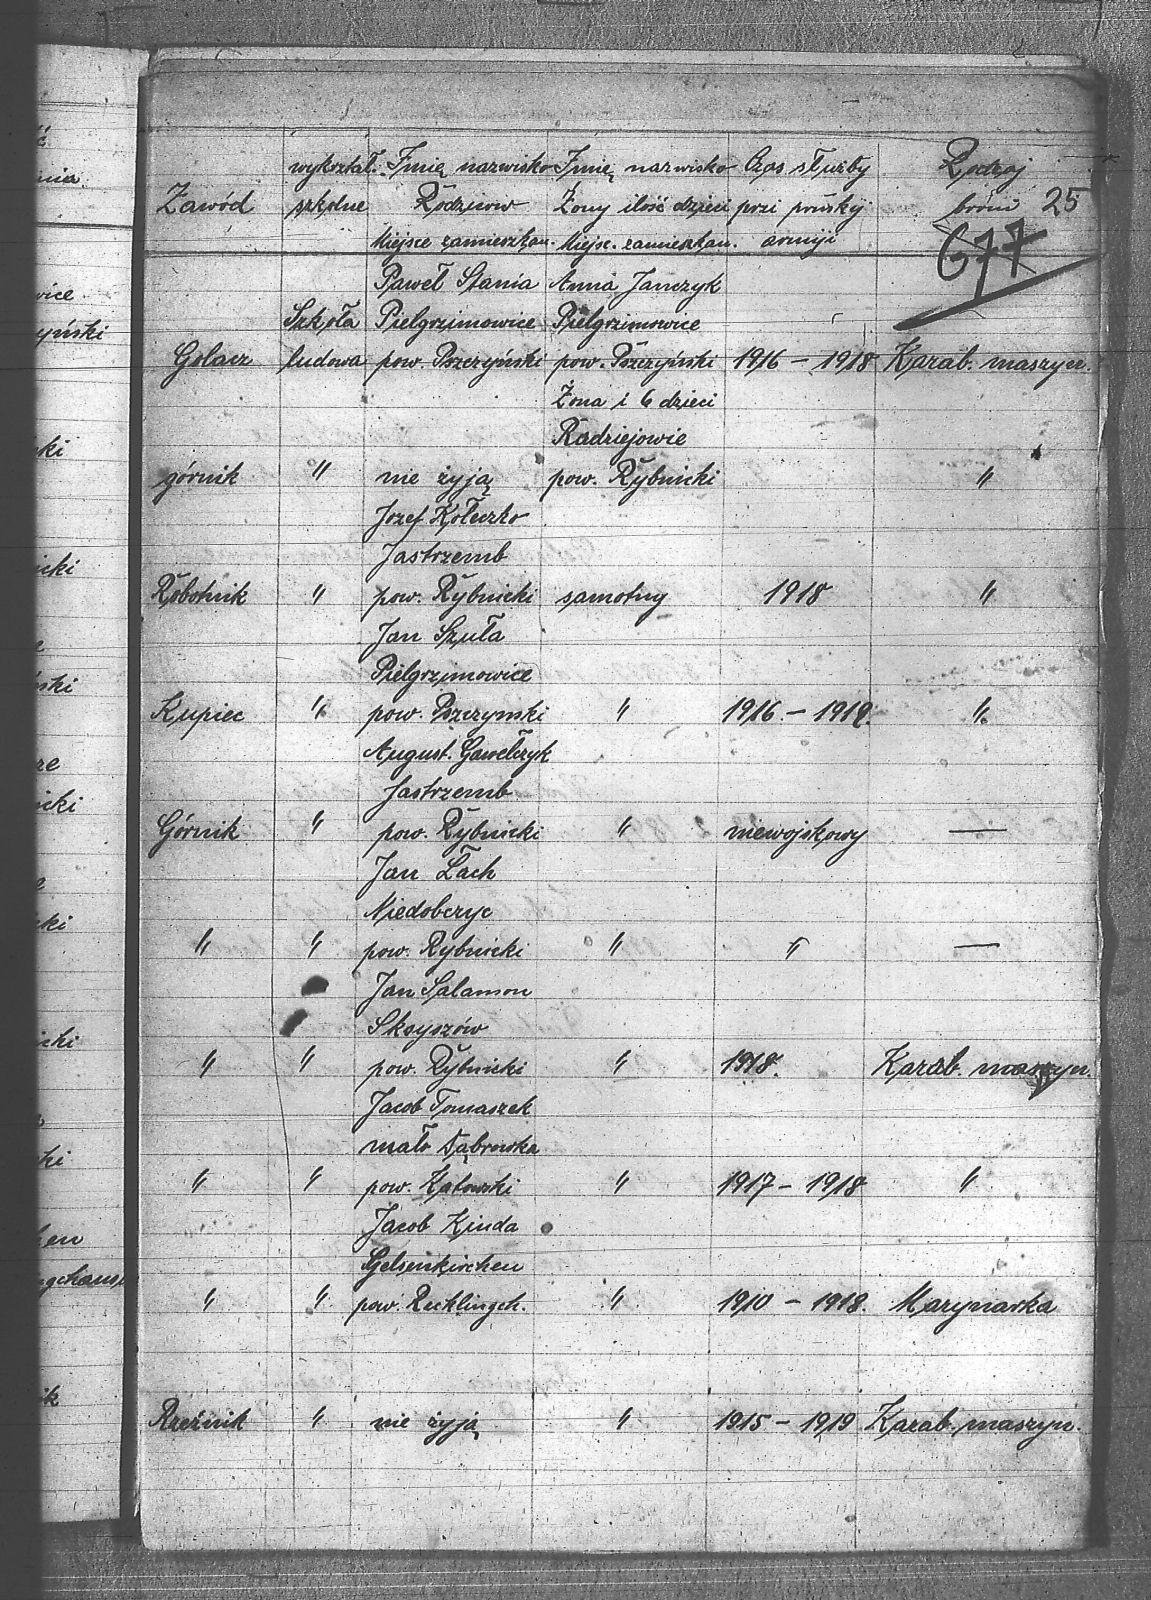 Zawód
wykształ. szkolne
Imię nazwisko Rodziców Miejsce zamieszkan.
Imię nazwisko Żony ilość dzieci Miejsc. zamieszkan.
Czas służby przi pruskij armiji
Rodzaj bróni 25
677
Paweł Stania Anna Janczyk
Szkoła Pielgrzimowice Pielgrzimowice
Golacz ludowa pow. Pszczyński pow. Pszczyński 1916 – 1918 Karab. maszyn.
Żona i 6 dzieci
Radziejowie
górnik " nie żyją pow. Rybnicki "
Jozef Kołeczko
Jastrzemb
Robotnik " pow. Rybnicki samotny 1918 "
Jan Szuła
Pielgrzimowice
Kupiec " pow. Pszczynski " 1916. – 1919. "
August. Gawełczyk
Jastrzemb
Górnik " pow. Rybnicki " niewojskowy —
Jan Łach
Niedobczyc
" " pow. Rybnicki " " —
Jan Salamon
Skryszów
" " pow. Rybnicki " 1918. Karab. maszyn.
Jacob Tomaszek
mało Dąbrowka
" " pow. Katowski " 1917 – 1918 "
Jacob Kinda
Gelsenkirchen
" " pow. Recklingch. " 1910 – 1918. Marynarka
Rzeźnik " nie żyją " 1915 – 1919 Karab. maszyn.